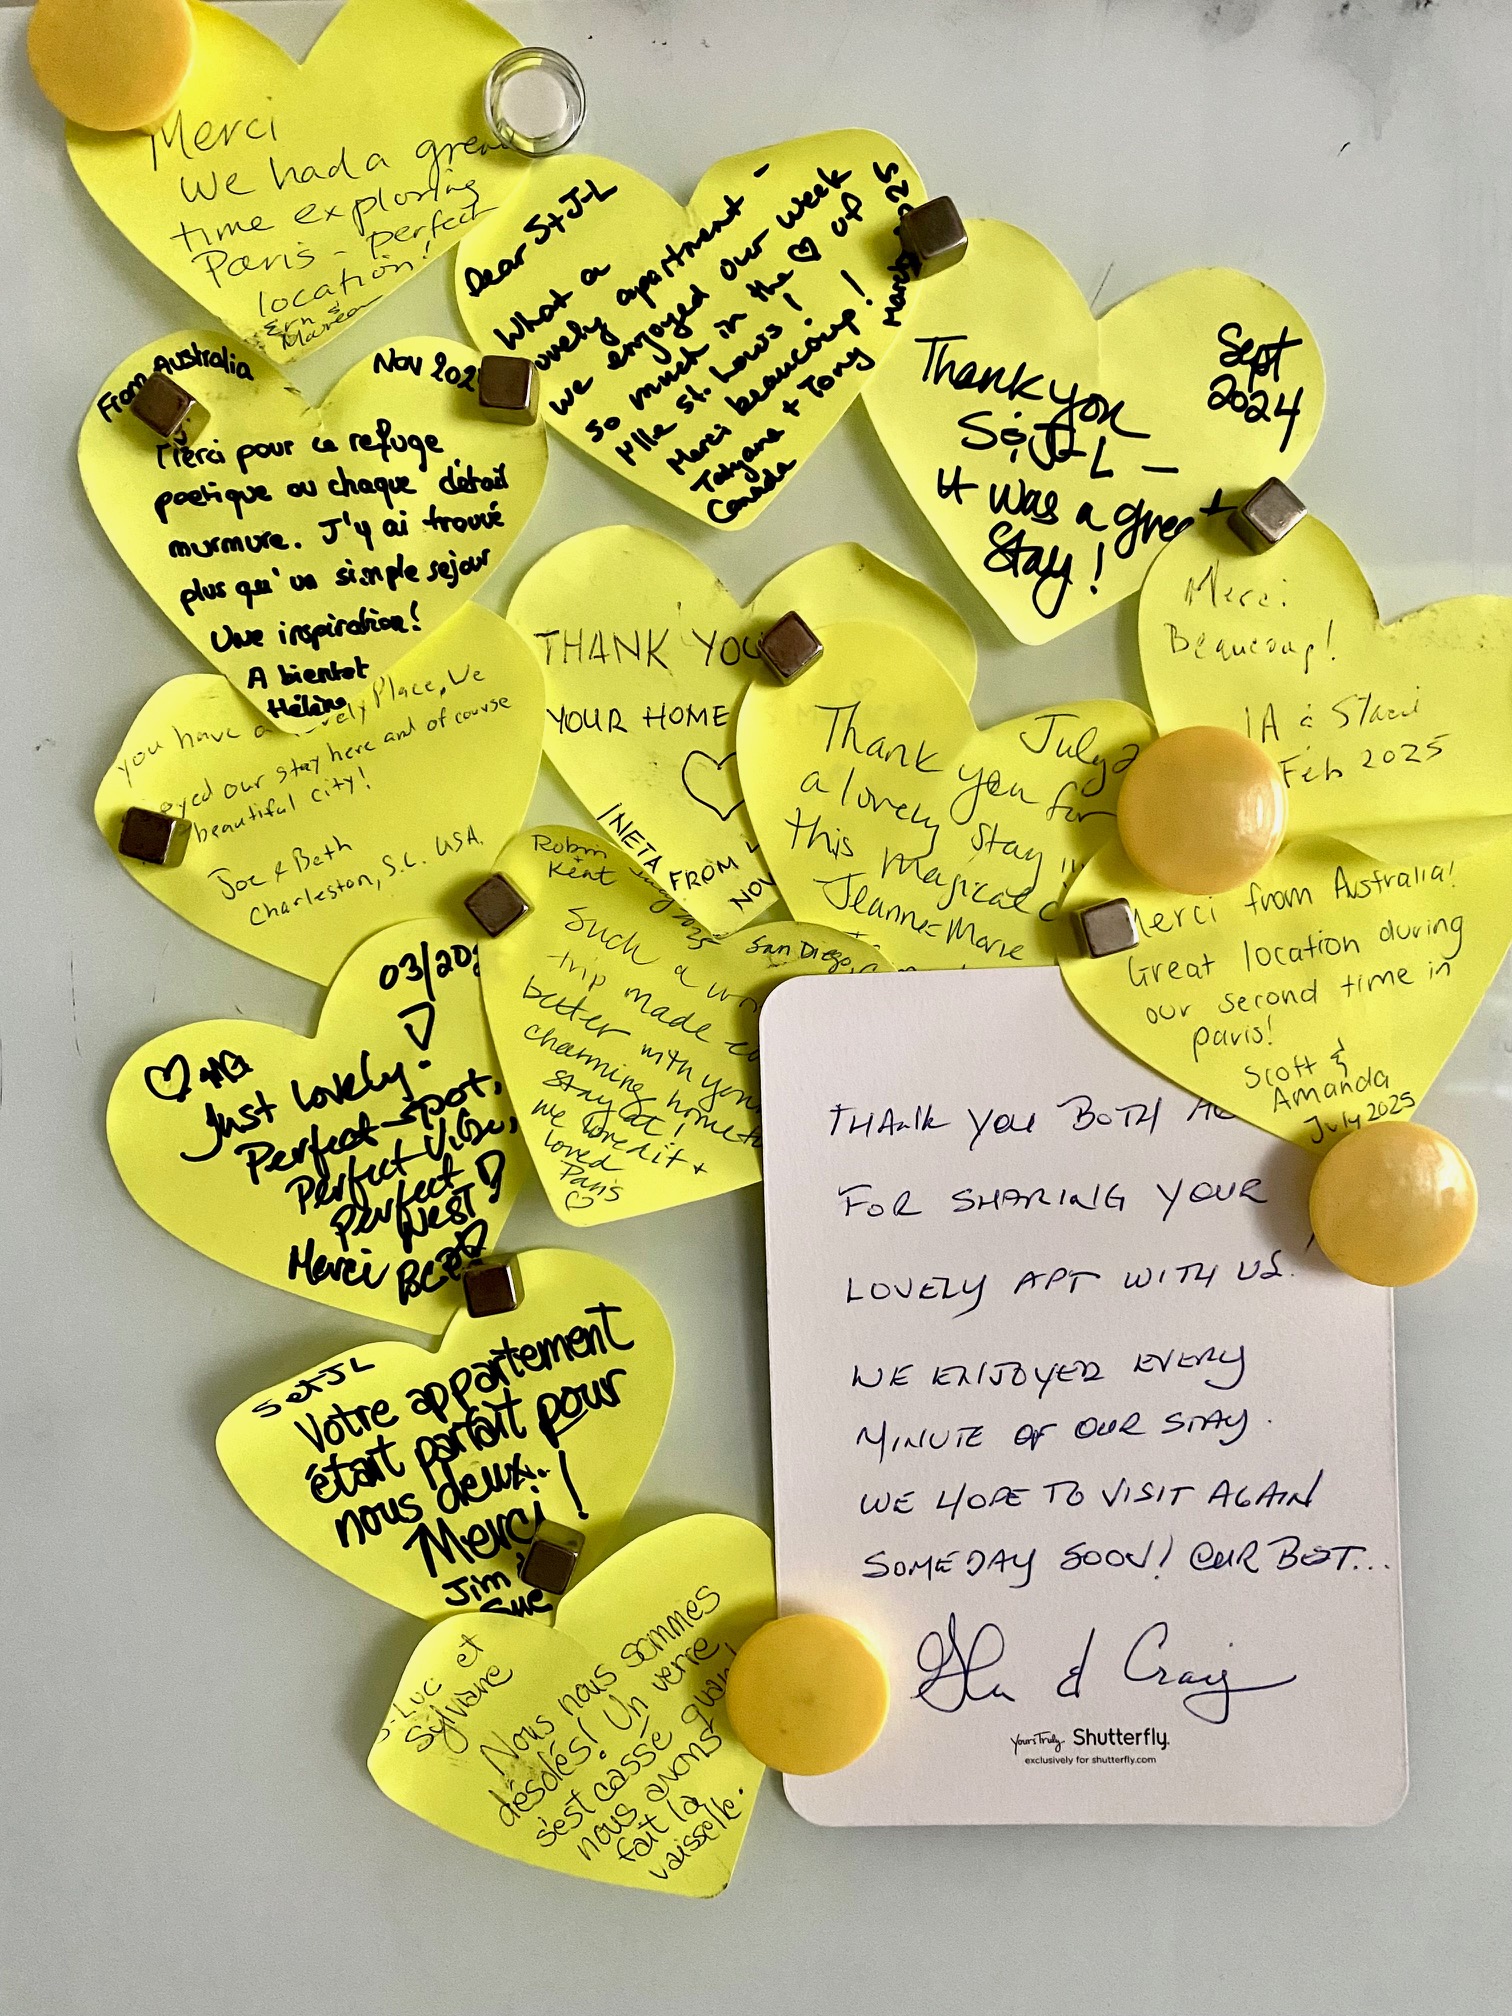 Merci
We had a grea
time exploring
Paris - perfect
location!
Ern &
Maureen
Dear S+J-L
What a
lovely apartment -
we enjoyed our week
so much in the ♡ of
l'Ile St. Louis!
Merci beaucoup!
Tatyana + Tony
Canada
March 2025
Thank you
S & J-L -
It was a great
Stay!
Sept
2024
From Australia
Nov 202
Merci pour ce refuge
poetique ou chaque détail
murmure. J'y ai trouvé
plus qu'un simple sejour
Une inspiration!
A bientot
Hélène
you have a lovely Place, We
oyed our stay here and of course
beautiful city!
Joe & Beth
Charleston, S.C. USA.
THANK YOU
YOUR HOME
♡
INETA FROM
NOV
July 2
Thank you for
a lovely stay
this magical
Jeanne-Marie
Merci
Beaucoup!
& Staci
Feb 2025
Merci from Australia!
Great location during
our second time in
paris!
Scott &
Amanda
July 2025
03/202
♡
Just lovely!
Perfect spot,
Perfect Vibe,
Perfect
NEST!
Merci
Robin
+ Kent
2025
San Diego, C
Such a wo
trip made e
better with your
charming home to
stay at!
We loved it +
loved
Paris
♡
THANK YOU BOTH
FOR SHARING YOUR
LOVELY APT WITH US.
WE ENJOYED EVERY
MINUTE OF OUR STAY.
WE HOPE TO VISIT AGAIN
SOMEDAY SOON! OUR BEST...
& Craig
Yours Truly. Shutterfly.
exclusively for shutterfly.com
S et JL
Votre appartement
était parfait pour
nous deux.!
Merci
Jim &
Sue
J-Luc et
Sylviane
Nous nous sommes
désolés! Un verre
s'est cassé quand
nous avons
fait la
vaisselle.